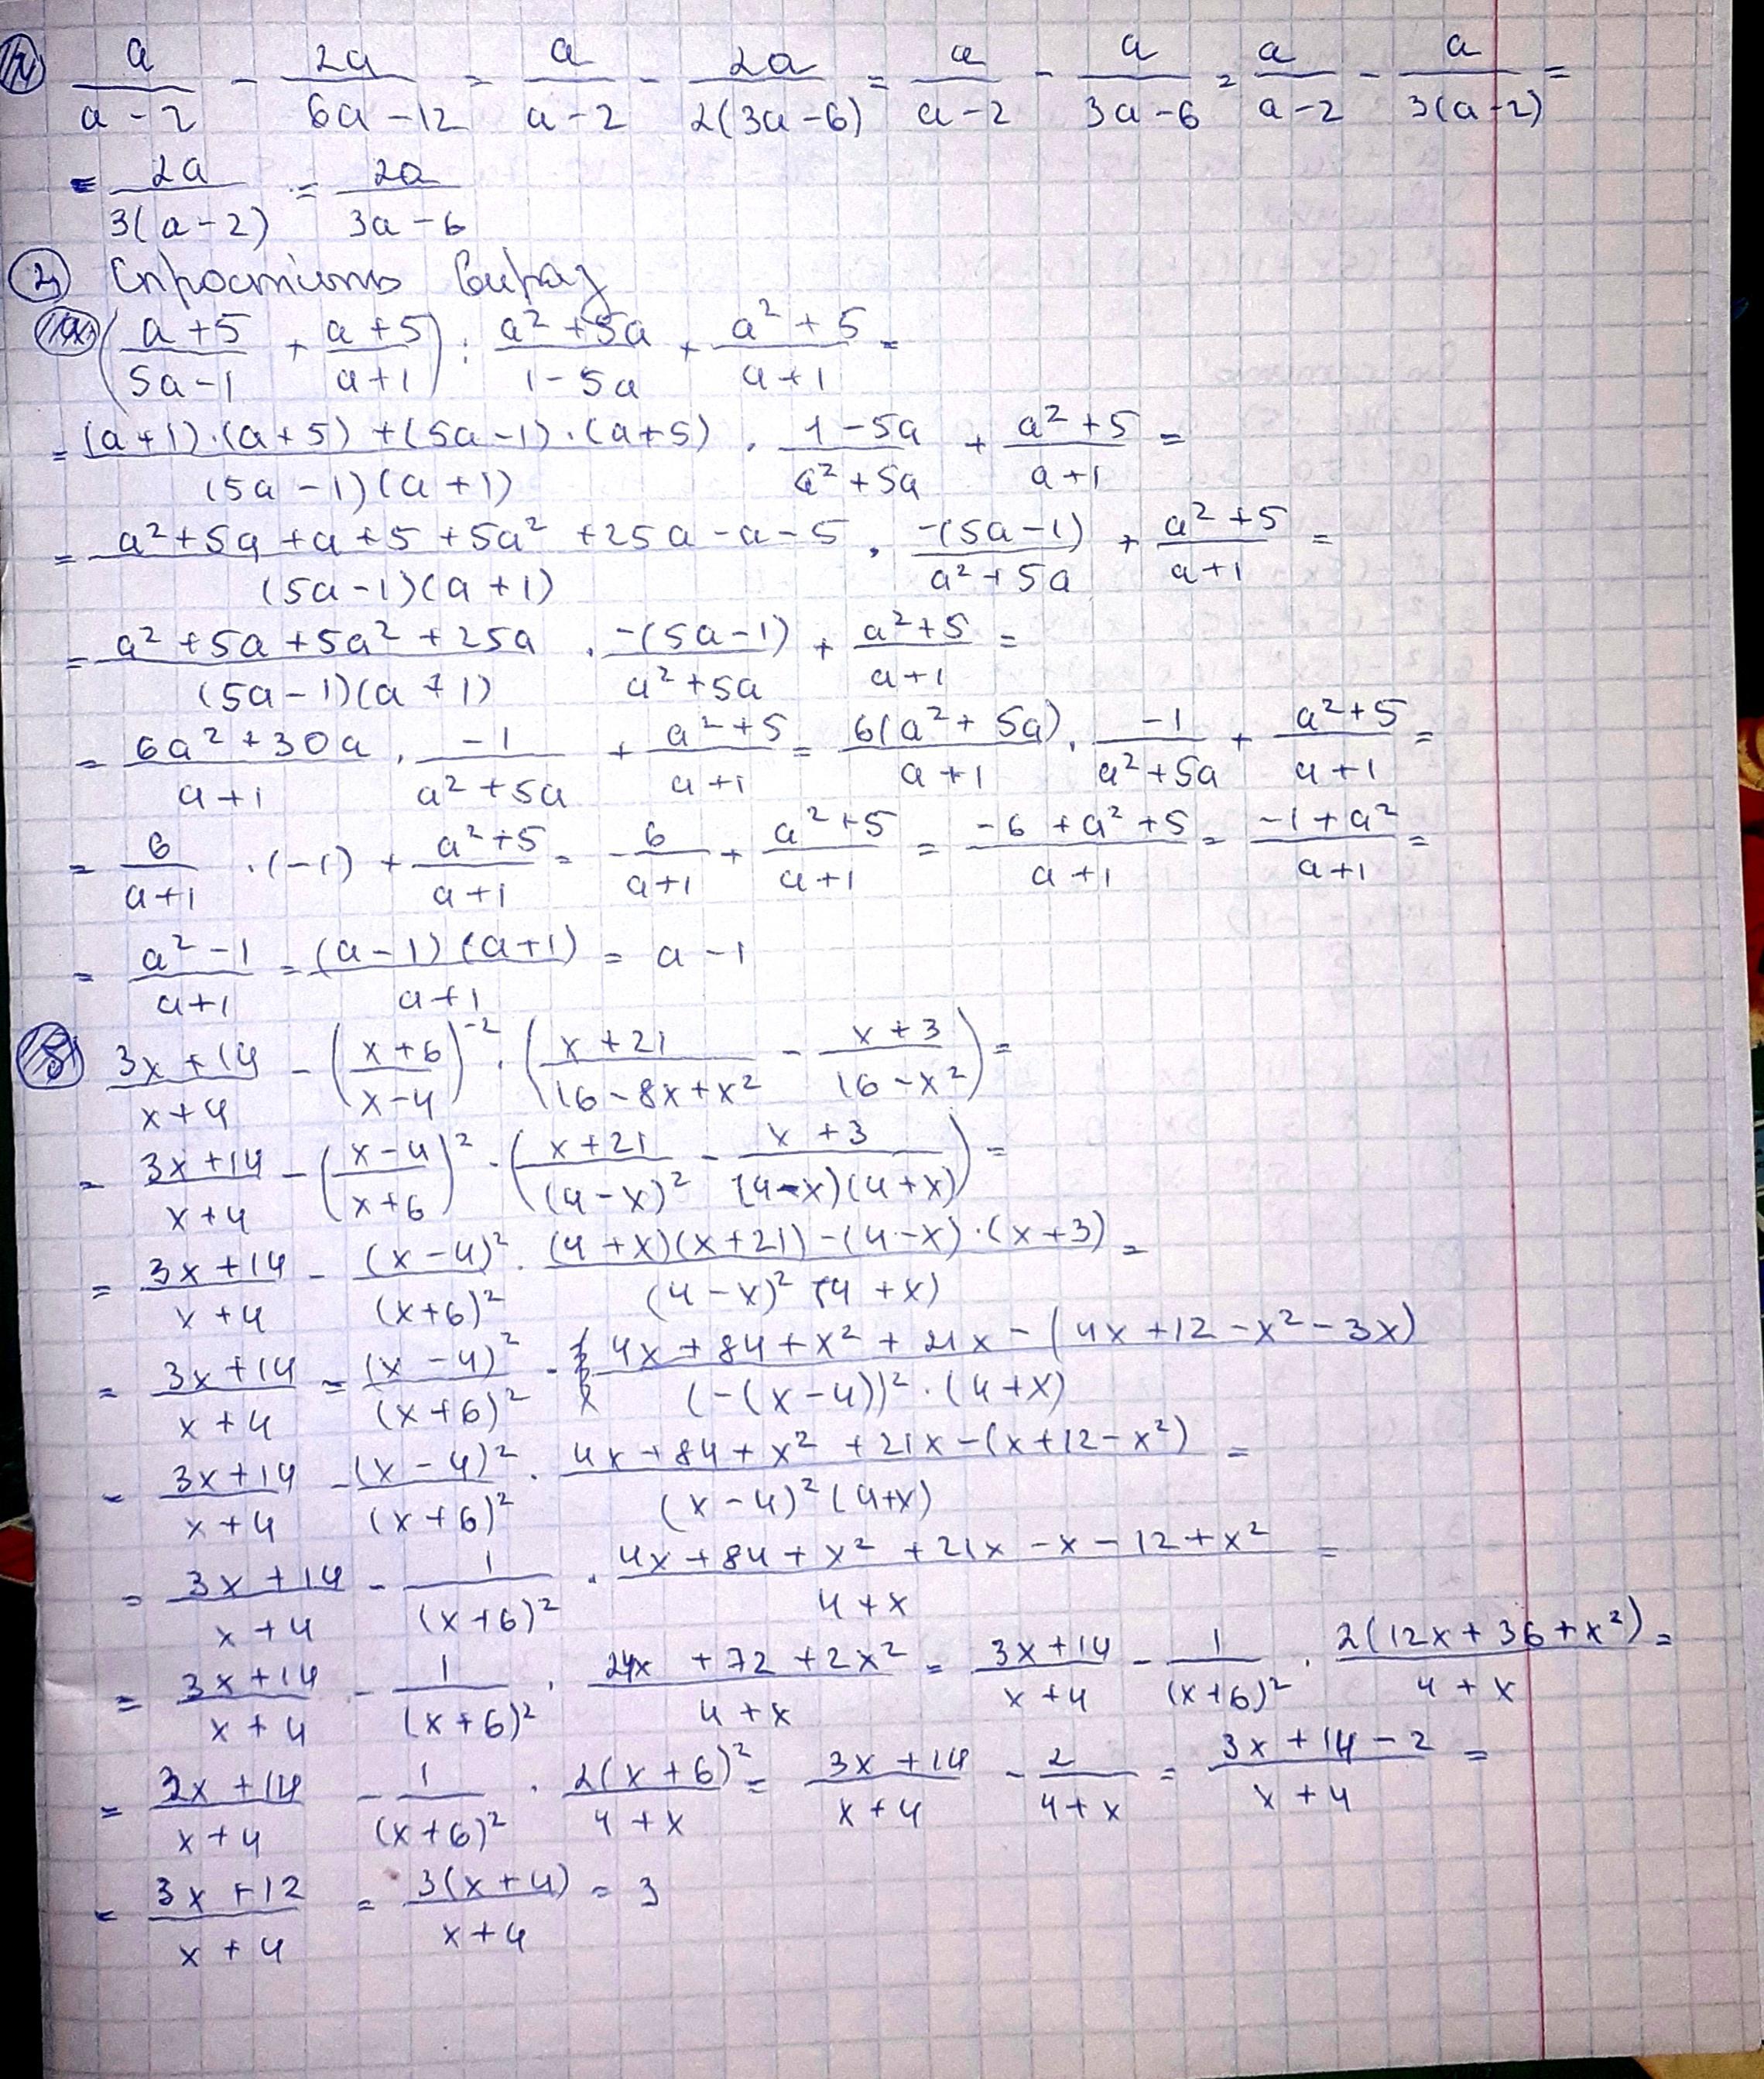 г) a/(a-2) - 2a/(6a-12) = a/(a-2) - 2a/(2(3a-6)) = a/(a-2) - a/(3a-6) = a/(a-2) - a/(3(a-2)) =
= 2a/(3(a-2)) = 2a/(3a-6)
2) Спростить вираз
а) ((a+5)/(5a-1) + (a+5)/(a+1)) : (a²+5a)/(1-5a) + (a²+5)/(a+1) =
= ((a+1)·(a+5)+(5a-1)·(a+5))/((5a-1)(a+1)) · (1-5a)/(a²+5a) + (a²+5)/(a+1) =
= (a²+5a+a+5+5a²+25a-a-5)/((5a-1)(a+1)) · (-(5a-1))/(a²+5a) + (a²+5)/(a+1) =
= (a²+5a+5a²+25a)/((5a-1)(a+1)) · (-(5a-1))/(a²+5a) + (a²+5)/(a+1) =
= (6a²+30a)/(a+1) · (-1)/(a²+5a) + (a²+5)/(a+1) = (6(a²+5a))/(a+1) · (-1)/(a²+5a) + (a²+5)/(a+1) =
= 6/(a+1) · (-1) + (a²+5)/(a+1) = -6/(a+1) + (a²+5)/(a+1) = (-6+a²+5)/(a+1) = (-1+a²)/(a+1) =
= (a²-1)/(a+1) = ((a-1)(a+1))/(a+1) = a-1
б) (3x+14)/(x+4) - ((x+6)/(x-4))⁻² · ((x+21)/(16-8x+x²) - (x+3)/(16-x²)) =
= (3x+14)/(x+4) - ((x-4)/(x+6))² · ((x+21)/((4-x)²) - (x+3)/((4-x)(4+x))) =
= (3x+14)/(x+4) - ((x-4)²)/((x+6)²) · ((4+x)(x+21)-(4-x)·(x+3))/((4-x)²(4+x)) =
= (3x+14)/(x+4) = ((x-4)²)/((x+6)²) · (4x+84+x²+21x-(4x+12-x²-3x))/((-(x-4))²·(4+x))
= (3x+14)/(x+4) - ((x-4)²)/((x+6)²) · (4x+84+x²+21x-(x+12-x²))/((x-4)²(4+x)) =
= (3x+14)/(x+4) - 1/((x+6)²) · (4x+84+x²+21x-x-12+x²)/(4+x) =
= (3x+14)/(x+4) - 1/((x+6)²) · (24x+72+2x²)/(4+x) = (3x+14)/(x+4) - 1/((x+6)²) · (2(12x+36+x²))/(4+x) =
= (3x+14)/(x+4) - 1/((x+6)²) · (2(x+6)²)/(4+x) = (3x+14)/(x+4) - 2/(4+x) = (3x+14-2)/(x+4) =
= (3x+12)/(x+4) = (3(x+4))/(x+4) = 3